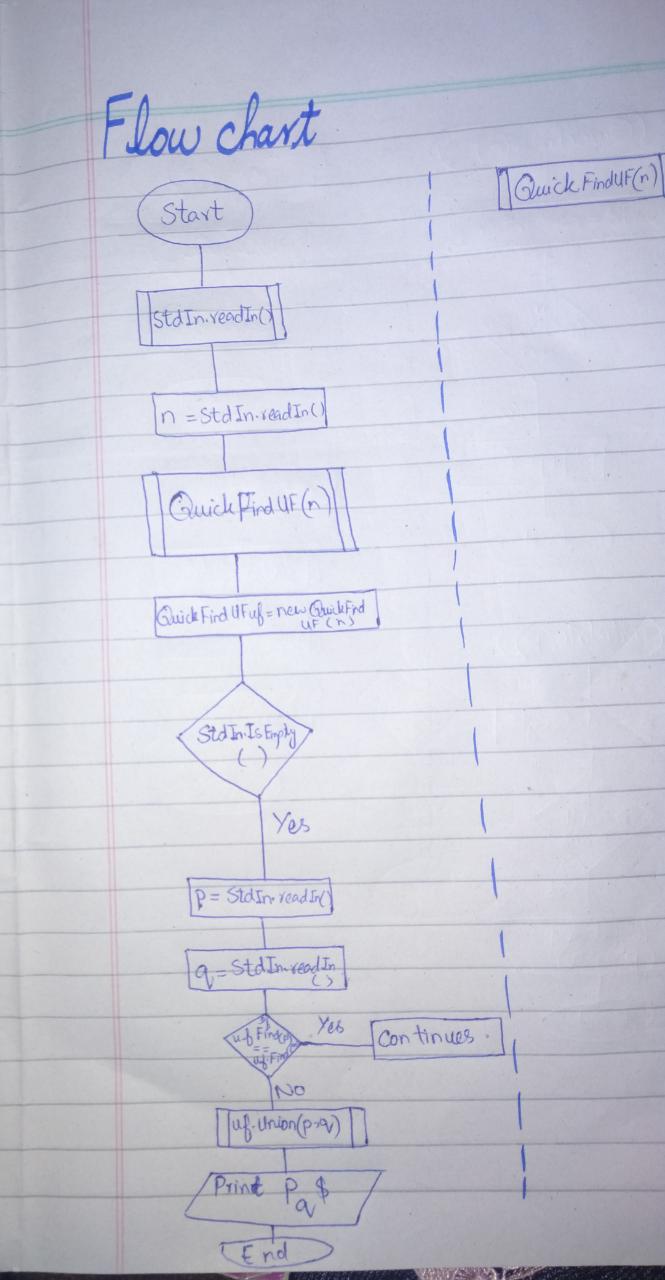 Flow chart
QuickFindUF(n)
Start
StdIn.readIn()
n = StdIn.readIn()
QuickFindUF(n)
QuickFindUFuf = new QuickFind
UF(n)
StdIn.IsEmpty
( )
Yes
p = StdIn.readIn()
q = StdIn.readIn
( )
uf.Find(p)
==
uf.Find
Yes
Continues.
No
uf.Union(p,q)
Print p
q $
End